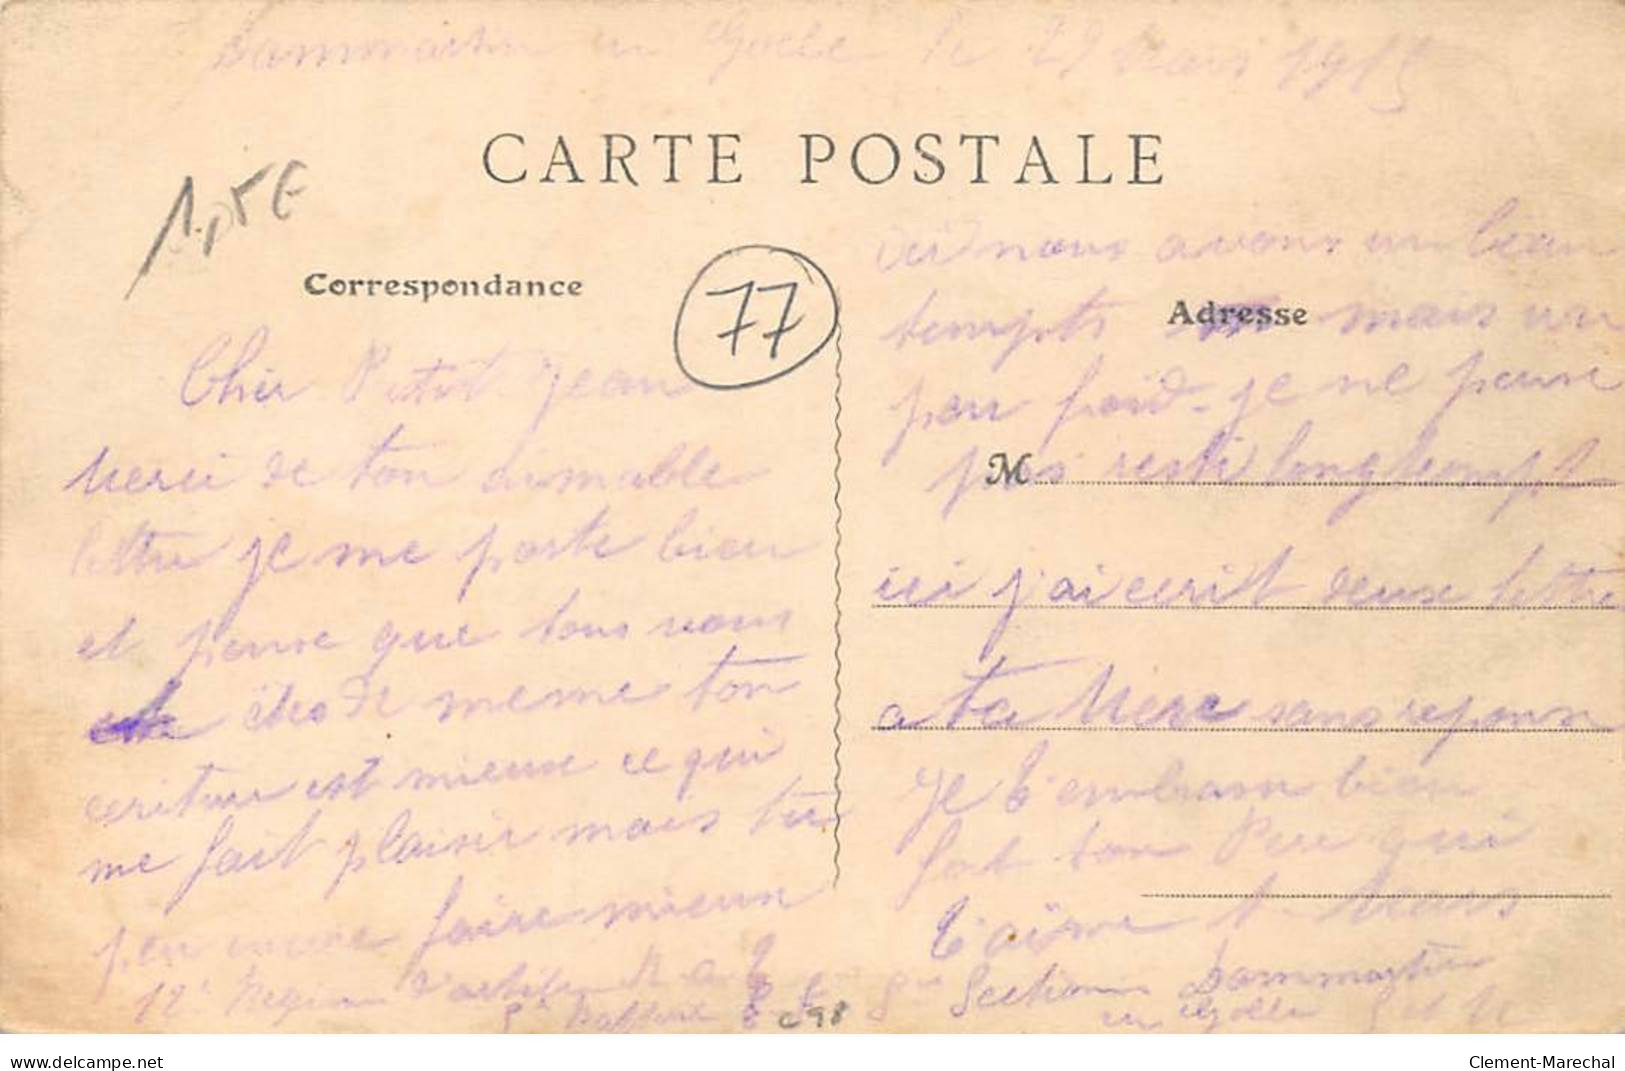 Dammartin en Goele le 29 Mars 1915
CARTE POSTALE
1,5€
Correspondance
77
Adresse
M
Cher Petit Jean
Merci de ton aimable
lettre je me porte bien
et pense que tous vous
etes de meme ton
ecriture est mieux ce qui
me fait plaisir mais tu
peu encore faire mieux
ici nous avons un beau
temps mais un
peu froid. je ne pense
pas resti longtempt
ici j'ai ecrit deux lettre
a ta Mere sans repons
Je t'embrasse bien
fort ton Pere qui
t'aime
12e Region d'artilerie
Section Dammartin
en Goelle S et M
c98
delcampe.net
Clement-Marechal